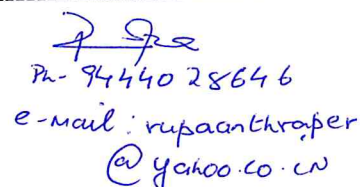 Ph- 9444028646
e-mail: rupaanthraper
@yahoo.co.in